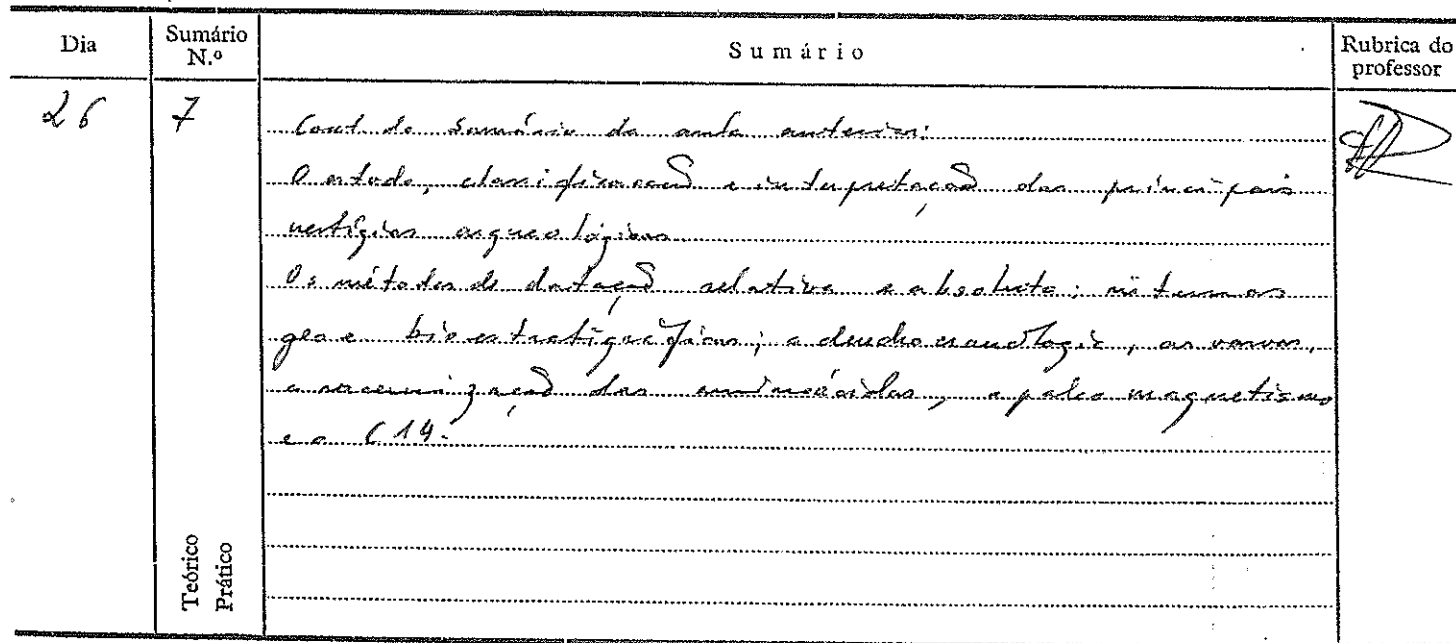 Dia
Sumário N.º
Sumário
Rubrica do professor
26
7
Cont do Sumário da aula anterior:
O estudo, classificação e interpretação dos principais
vestígios arqueológicos
Os métodos de datação relativa e absoluta:
geo e bioestratigráficos; a dendrocronologia, as varvas,
a racemização dos aminoácidos, o paleomagnetismo
e o C14.
Teórico
Prático